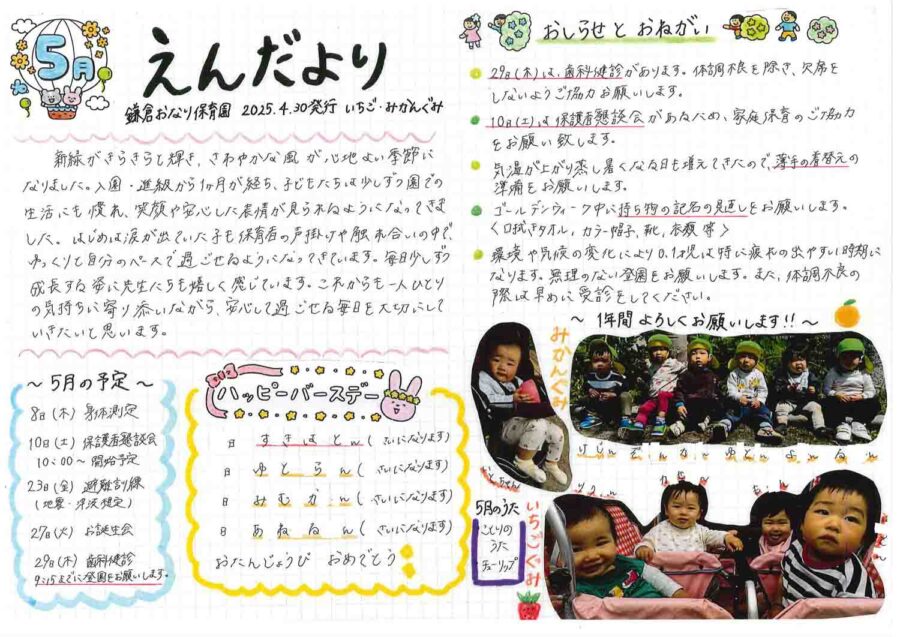 5月
えんだより
鎌倉おなり保育園 2025.4.30発行 いちご・みかんぐみ
新緑がきらきらと輝き、さわやかな風が心地よい季節に
なりました。入園・進級から1ヶ月が経ち、子どもたちは少しずつ園での
生活にも慣れ、笑顔や安心した表情が見られるようになってきま
した。はじめは涙が出ていた子も保育者の声掛けや触れ合いの中で、
ゆっくりと自分のペースで過ごせるようになってきています。毎日少しずつ
成長する姿に先生たちも嬉しく感じています。これからも一人ひとり
の気持ちに寄り添いながら、安心して過ごせる毎日を大切にして
いきたいと思います。
〜 5月の予定 〜
8日(木) 身体測定
10日(土) 保護者懇談会
10:00〜開始予定
23日(金) 避難訓練
(地震・津波想定)
27日(火) お誕生会
29日(木) 歯科健診
9:15までに登園をお願いします。
ハッピーバースデー
日 すきはとん( さいになります)
日 ゆとらん( さいになります)
日 みむかん( さいになります)
日 あねねん( さいになります)
おたんじょうび おめでとう
おしらせと おねがい
29日(木)は、歯科健診があります。体調不良を除き、欠席を
しないようご協力お願いします。
10日(土)は保護者懇談会があるため、家庭保育のご協力
をお願い致します。
気温が上がり蒸し暑くなる日も増えてきたので、薄手の着替えの
準備をお願いします。
ゴールデンウィーク中に持ち物の記名の見直しをお願いします。
〈口拭きタオル、カラー帽子、靴、衣類 等〉
環境や気候の変化により0.1才児は特に疲れの出やすい時期に
なります。無理のない登園をお願いします。また、体調不良の
際は早めに受診をしてください。
〜 1年間よろしくお願いします!! 〜
みかんぐみ
いちごぐみ
5月のうた
ことりの
うた
チューリップ